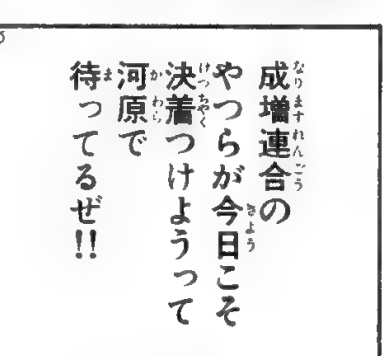 成増連合の
やつらが今日こそ
決着つけようって
河原で
待ってるぜ!!